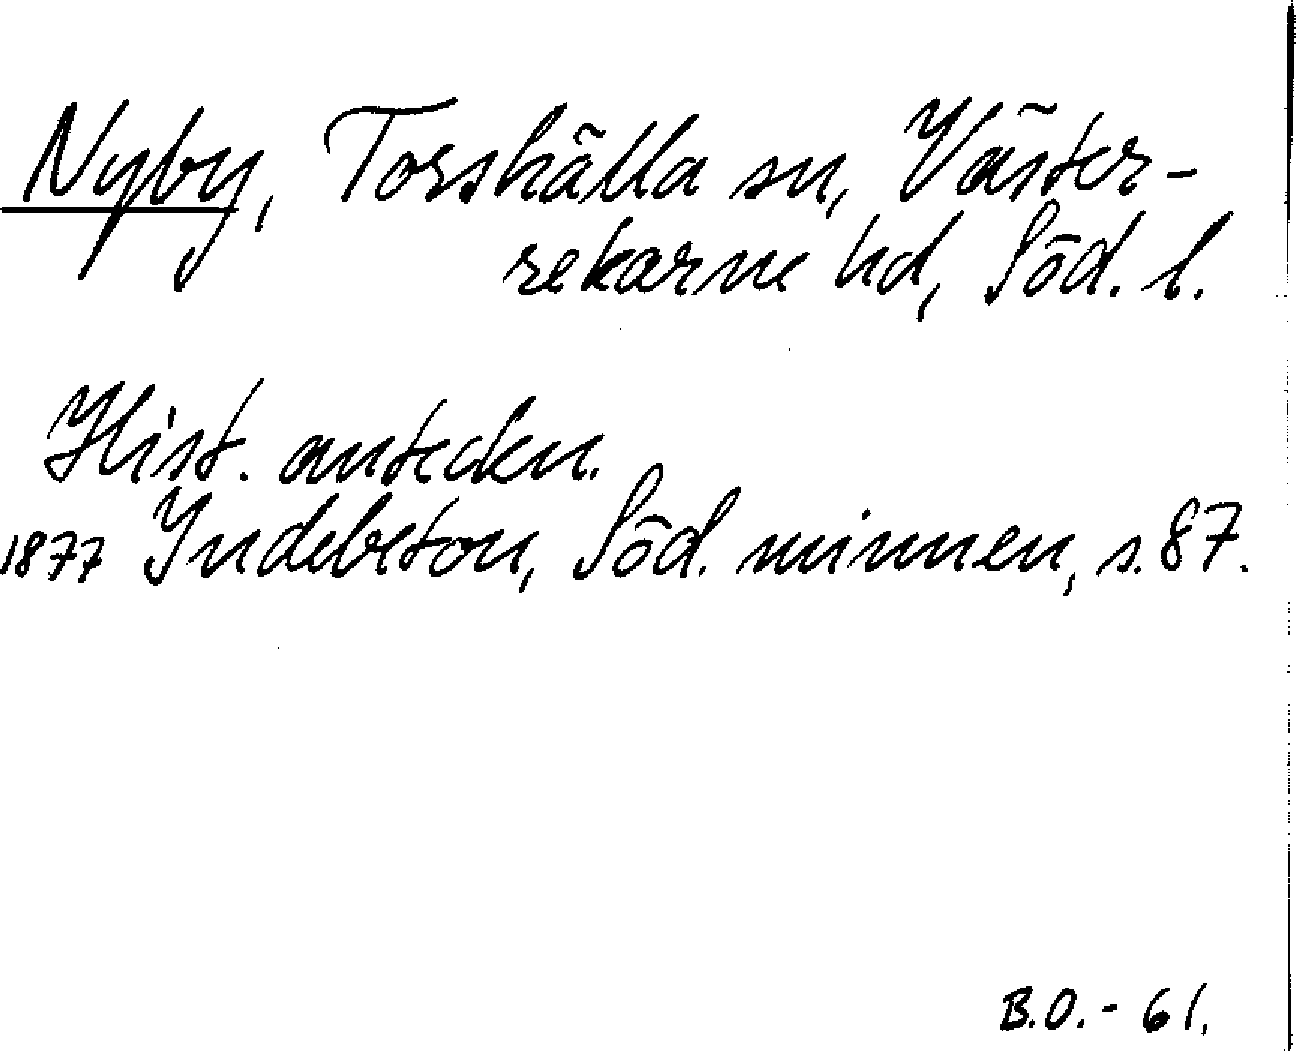 Nyby, Torshälla sn, Väster-
rekarne hd, Söd. l.
Hist. anteckn.
1877 Indebetou, Söd. minnen, s. 87.
B.O.-61.